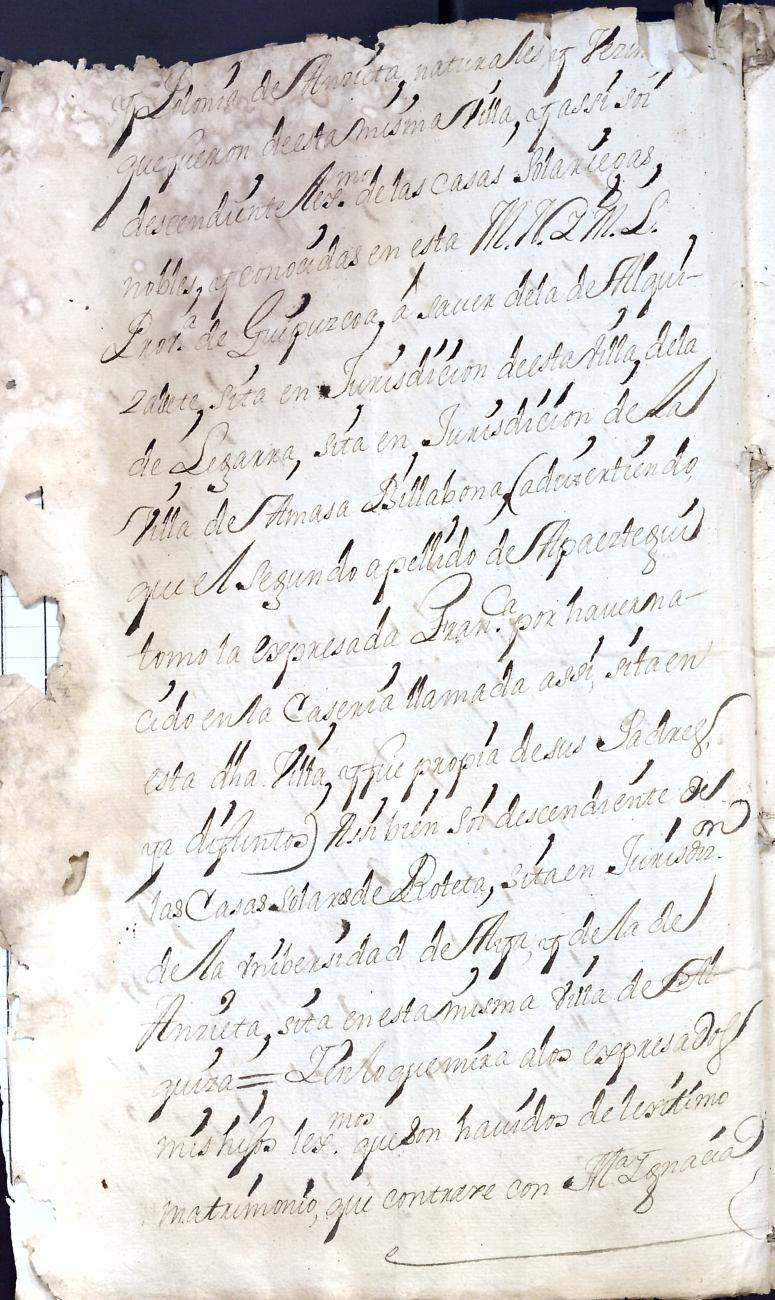 y Polonia de Anzieta, naturales, y Vezin
que fueron de esta misma Villa, y assi soi
descendiente lex.mo de las casas Solariegas,
nobles, y conocidas en esta M. N. Y M. L.
Prov.a de Guipuzcoa, á saver dela de Alqui-
zalete, sita en Jurisdicion de esta Villa, dela
de Legarra, sita en Jurisdicion de la
Villa de Amasa Billabona, (adviertiendo,
que el segundo apellido de Apaeztegui
tomo la expresada Fran.ca por haver na-
cido en la Caseria llamada assi, sita en
esta dha Villa, y fue propia de sus Padres,
ya difuntos) Assi bien soi descendiente de
las Casas solares de Roteta, sita en Jurisd.on
de la Vnibersidad de Alza, y de la de
Anzieta, sita en esta misma Villa de Al-
quiza = Y en lo que mira a los expresados
mis hijos lex.mos que son havidos de lexitimo
matrimonio, que contraxe con M.a Ygnacia